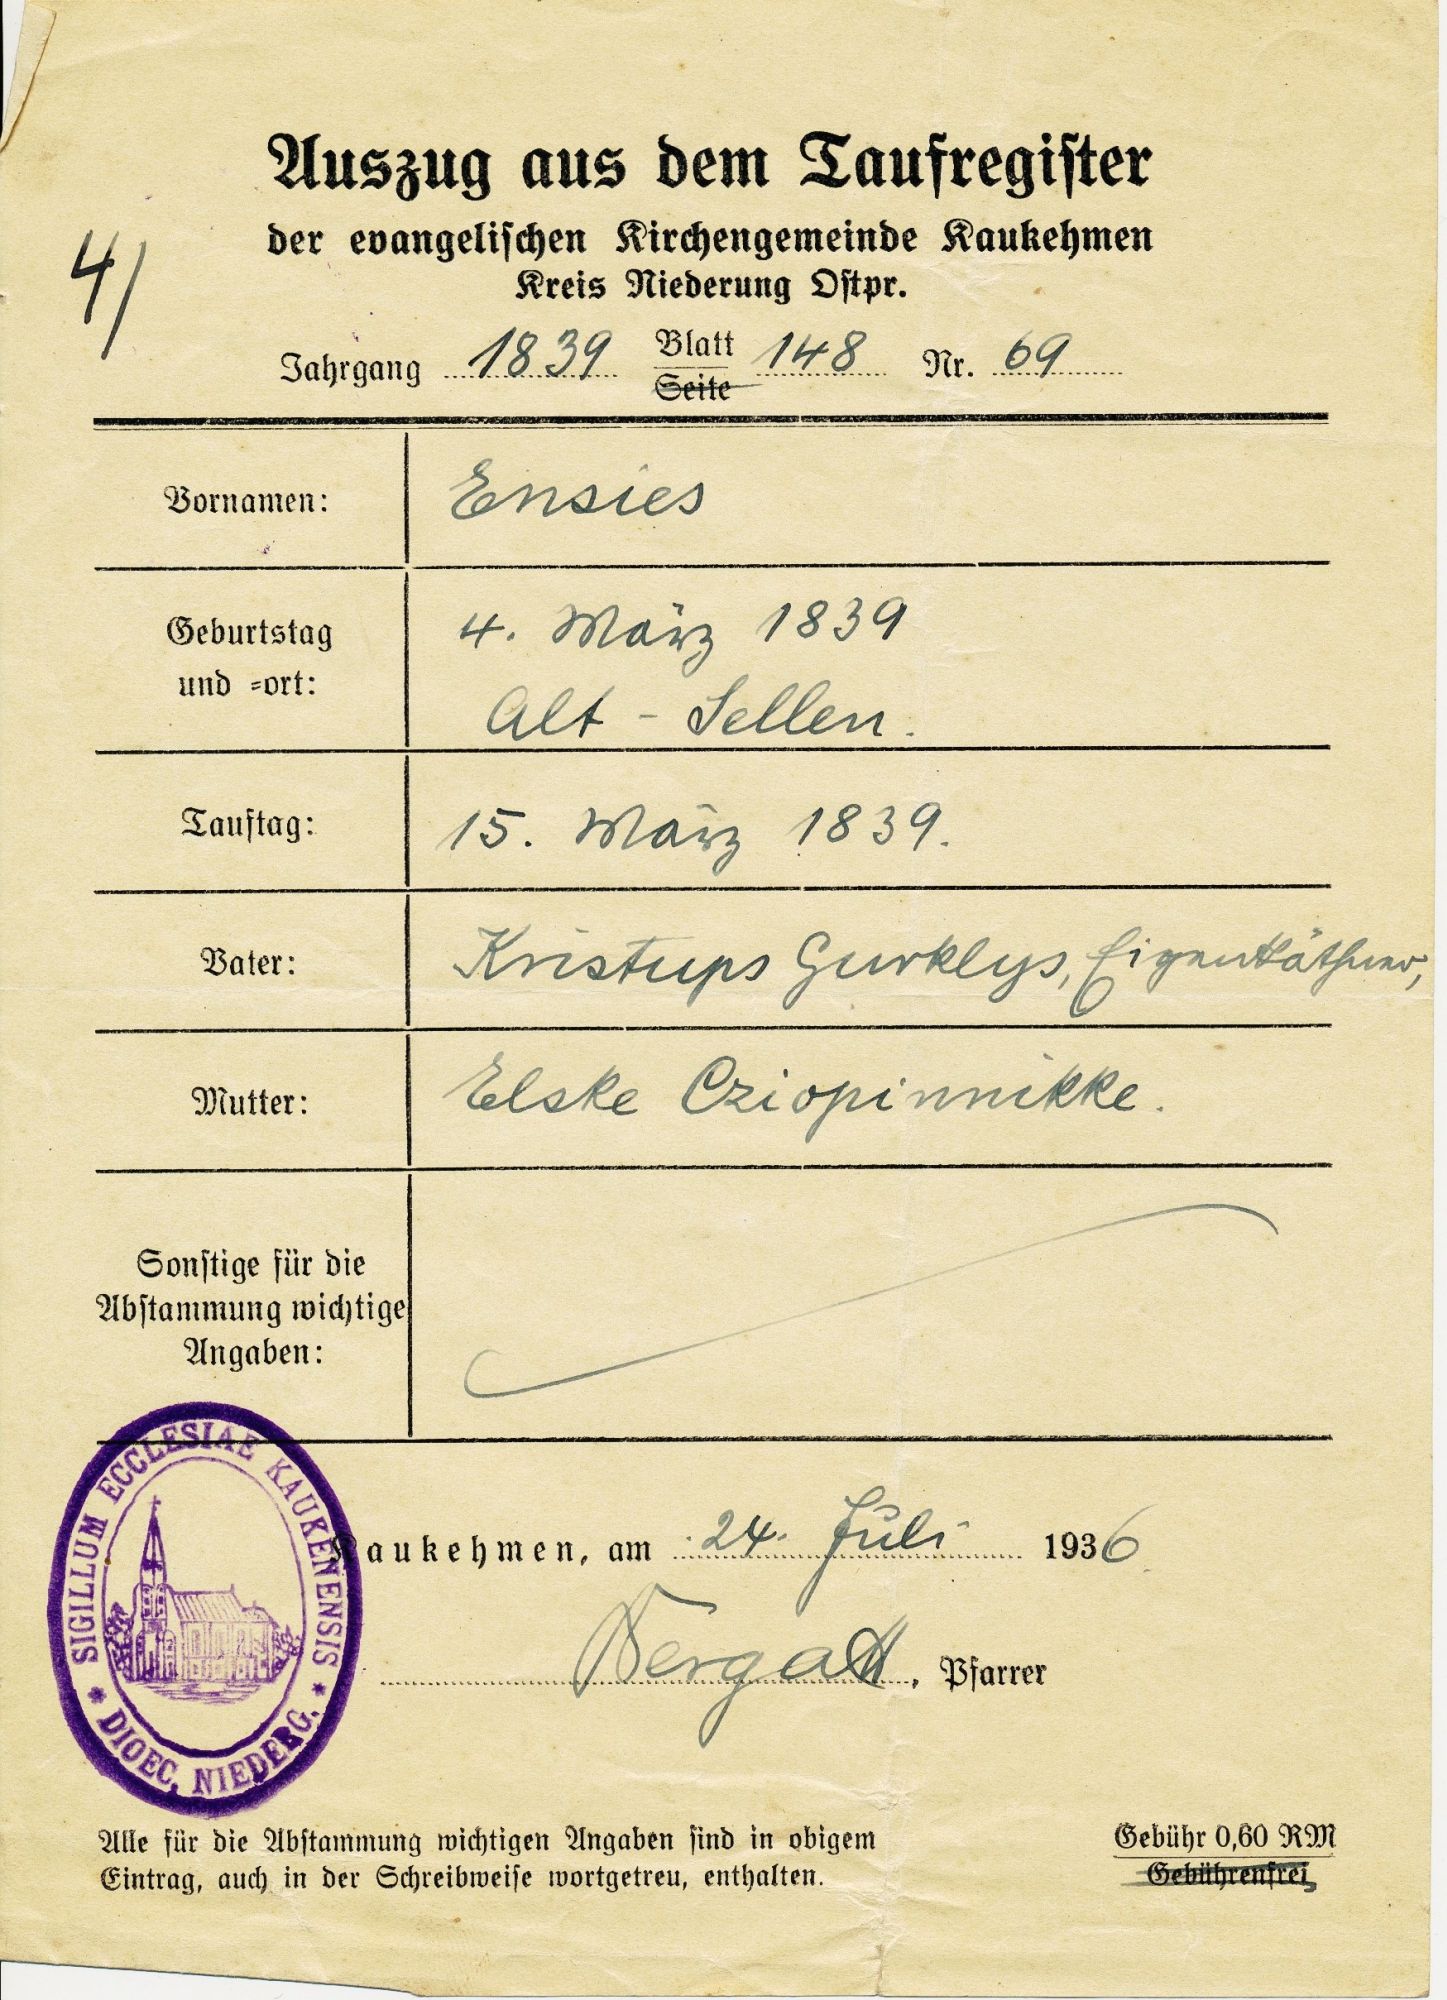 Auszug aus dem Taufregister
der evangelischen Kirchengemeinde Kaukehmen
Kreis Niederung Ostpr.
4/
Jahrgang 1839 Blatt 148 Nr. 69
Seite
Vornamen: Ensies
Geburtstag 4. März 1839
und =ort: Alt - Sellen.
Tauftag: 15. März 1839.
Vater: Kristups Gurklys, Eigenkäthner,
Mutter: Elske Cziopinnikke.
Sonstige für die
Abstammung wichtige
Angaben:
SIGILLUM ECCLESIAE KAUKENENSIS
* DIOEC. NIEDERG. *
Kaukehmen, am 24. Juli 1936
, Pfarrer
Alle für die Abstammung wichtigen Angaben sind in obigem
Eintrag, auch in der Schreibweise wortgetreu, enthalten.
Gebühr 0,60 RM
Gebührenfrei